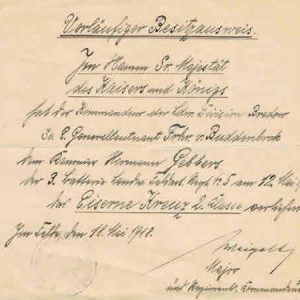 Vorläufiger Besitzausweis.
Im Namen Sr. Majestät
des Kaisers und Königs
hat der Kommandeur der Division Bredow
Generalleutnant Frhr. v. Buddenbrock
dem Hermann Gebbers
der 3. Batterie Landw. Feldart. Regt. No 5 am 12. Mai
das Eiserne Kreuz 2. Klasse verliehen
Im Felde, den 18. Mai 1918.
Major
und Regiments-Kommandeur